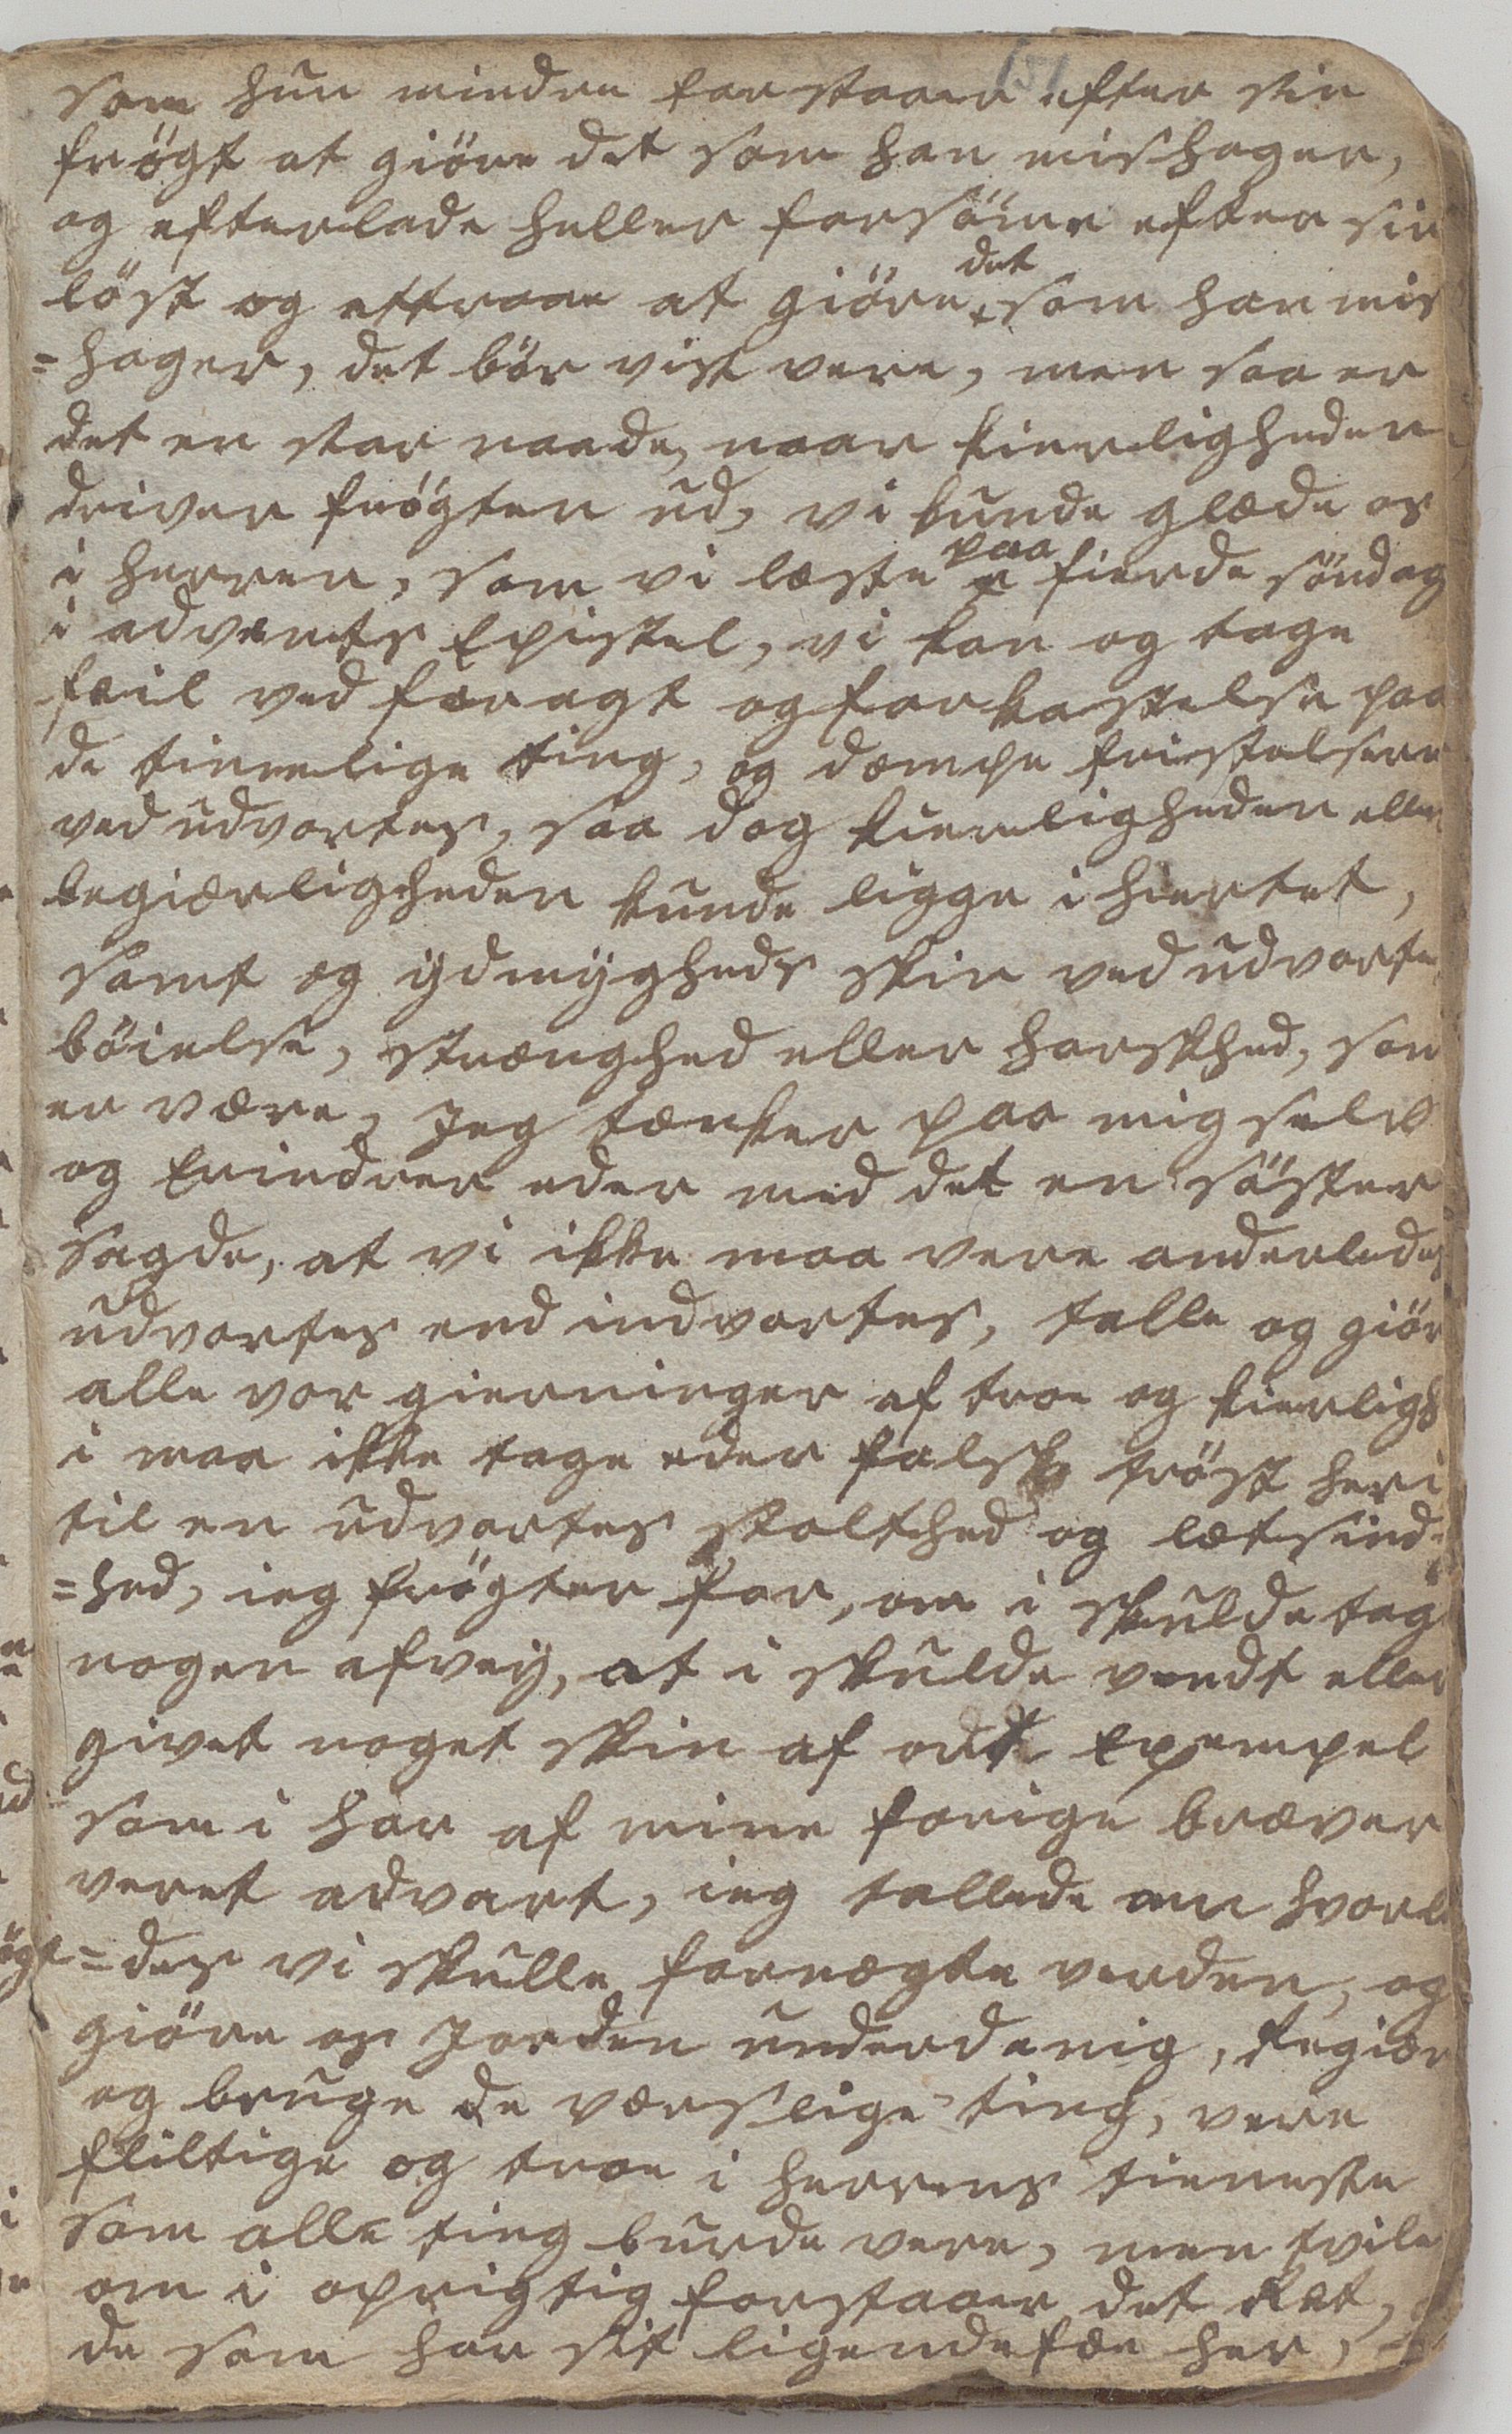 151
som hun minder forstaaer efter sin
frögt at giöre det som han mishager,
og efterlade heller forsöme efter sin
löst og attraae at giöre det som han mis
=hager, det bör vist vere, men saa er
det en stor naade, naar kierligheden
driver frögten ud, vi kunde glæde os
i herren, som vi læste paa fierde söndag
i advents Epistel, vi kan og tage
feil ved foragt og forkastelse paa
de timelige ting, og dæmpe fristelsere
ved udvortes, saa dog kierligheden eller
begiærligheden kunde ligge i hiertet,
samt og ydmygheds skin ved udvortes
böielse, strænghed eller harskhed, som
er være, Jeg tænker paa mig selv
og Erindrer eder med det en söster
sagde, at vi ikke maa vere anderledes
udvortes end indvortes, talle og giör
alle vor gierninger af troe og kierligh
i maa ikke tage eder falsk tröst heri
til en udvortes stolthed og letsind=
=hed, ieg frögter for, om i skulde tag
nogen afvey, at i skulde vendt eller
givet noget skin af ont Exempel
som i har af mine forige bræver
veret advart, ieg tallede om hvorle
=des vi skulle fornægte verden, og
giöre os Jorden underdanig, Regiær
og bruge de værslige ting, vere
flittige og troe i herrens tieneste
som alle ting burde vere, men tvile
om i oprigtig forstaaer det Ret,
de som har sit ligendefæe her,